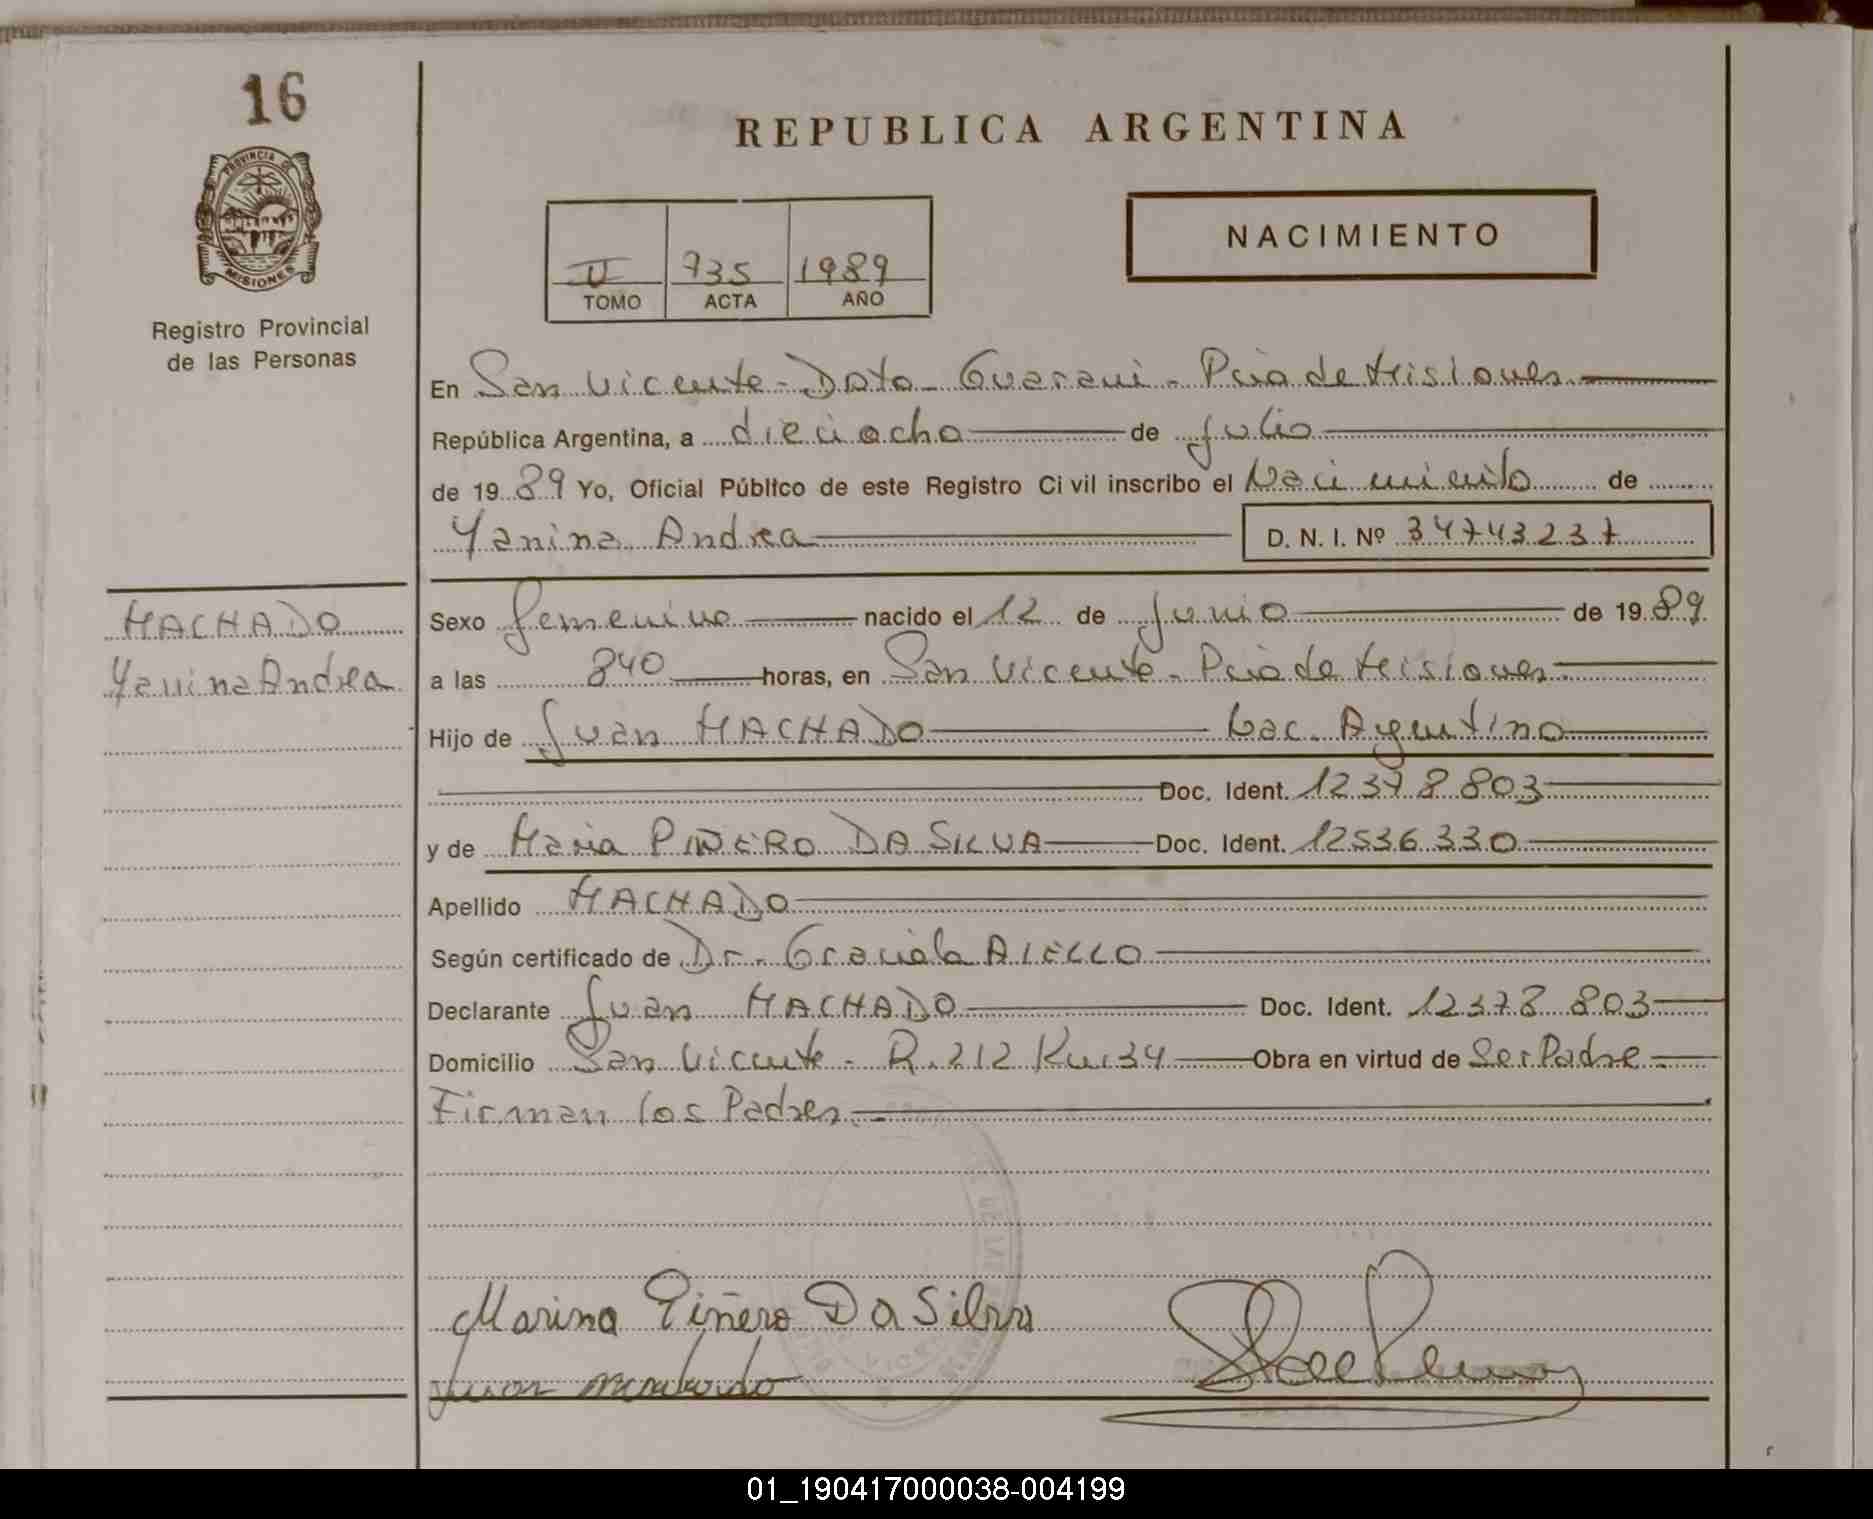 16
PROVINCIA DE
MISIONES
Registro Provincial
de las Personas
REPUBLICA ARGENTINA
NACIMIENTO
II 735 1989
TOMO ACTA AÑO
En San Vicente - Dpto - Guarani - Pcia de Misiones
República Argentina, a dieciocho de Julio
de 1989 Yo, Oficial Público de este Registro Civil inscribo el Nacimiento de
Yanina Andrea D. N. I. Nº 34743237
MACHADO
Yanina Andrea
Sexo femenino nacido el 12 de Junio de 1989.
a las 840 horas, en San Vicente - Pcia de Misiones
Hijo de Juan MACHADO Nac. Argentino
Doc. Ident. 12378803
y de Maria PIÑERO DA SILVA Doc. Ident. 12536330
Apellido MACHADO
Según certificado de Dr. Graciela AIELLO
Declarante Juan MACHADO Doc. Ident. 12378803
Domicilio San Vicente - R. 212 Km 34 Obra en virtud de Ser Padre
Firman los Padres
Marina Piñero Da Silva
Juan Machado
01_190417000038-004199